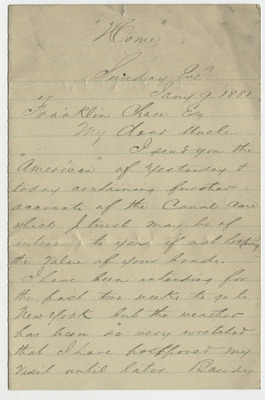 "Home"
Sunday Eve
Jany 9. 1881
Franklin Chase Esq
My dear Uncle
I send you the
American of Yesterday &
today containing further
accounts of the Canal Case
which I trust may be of
interest to you if not helping
the value of your bonds.
I have been intending for
the past two weeks to go to
New York but the weather
has been so very wretched
that I have postponed my
visit until later.